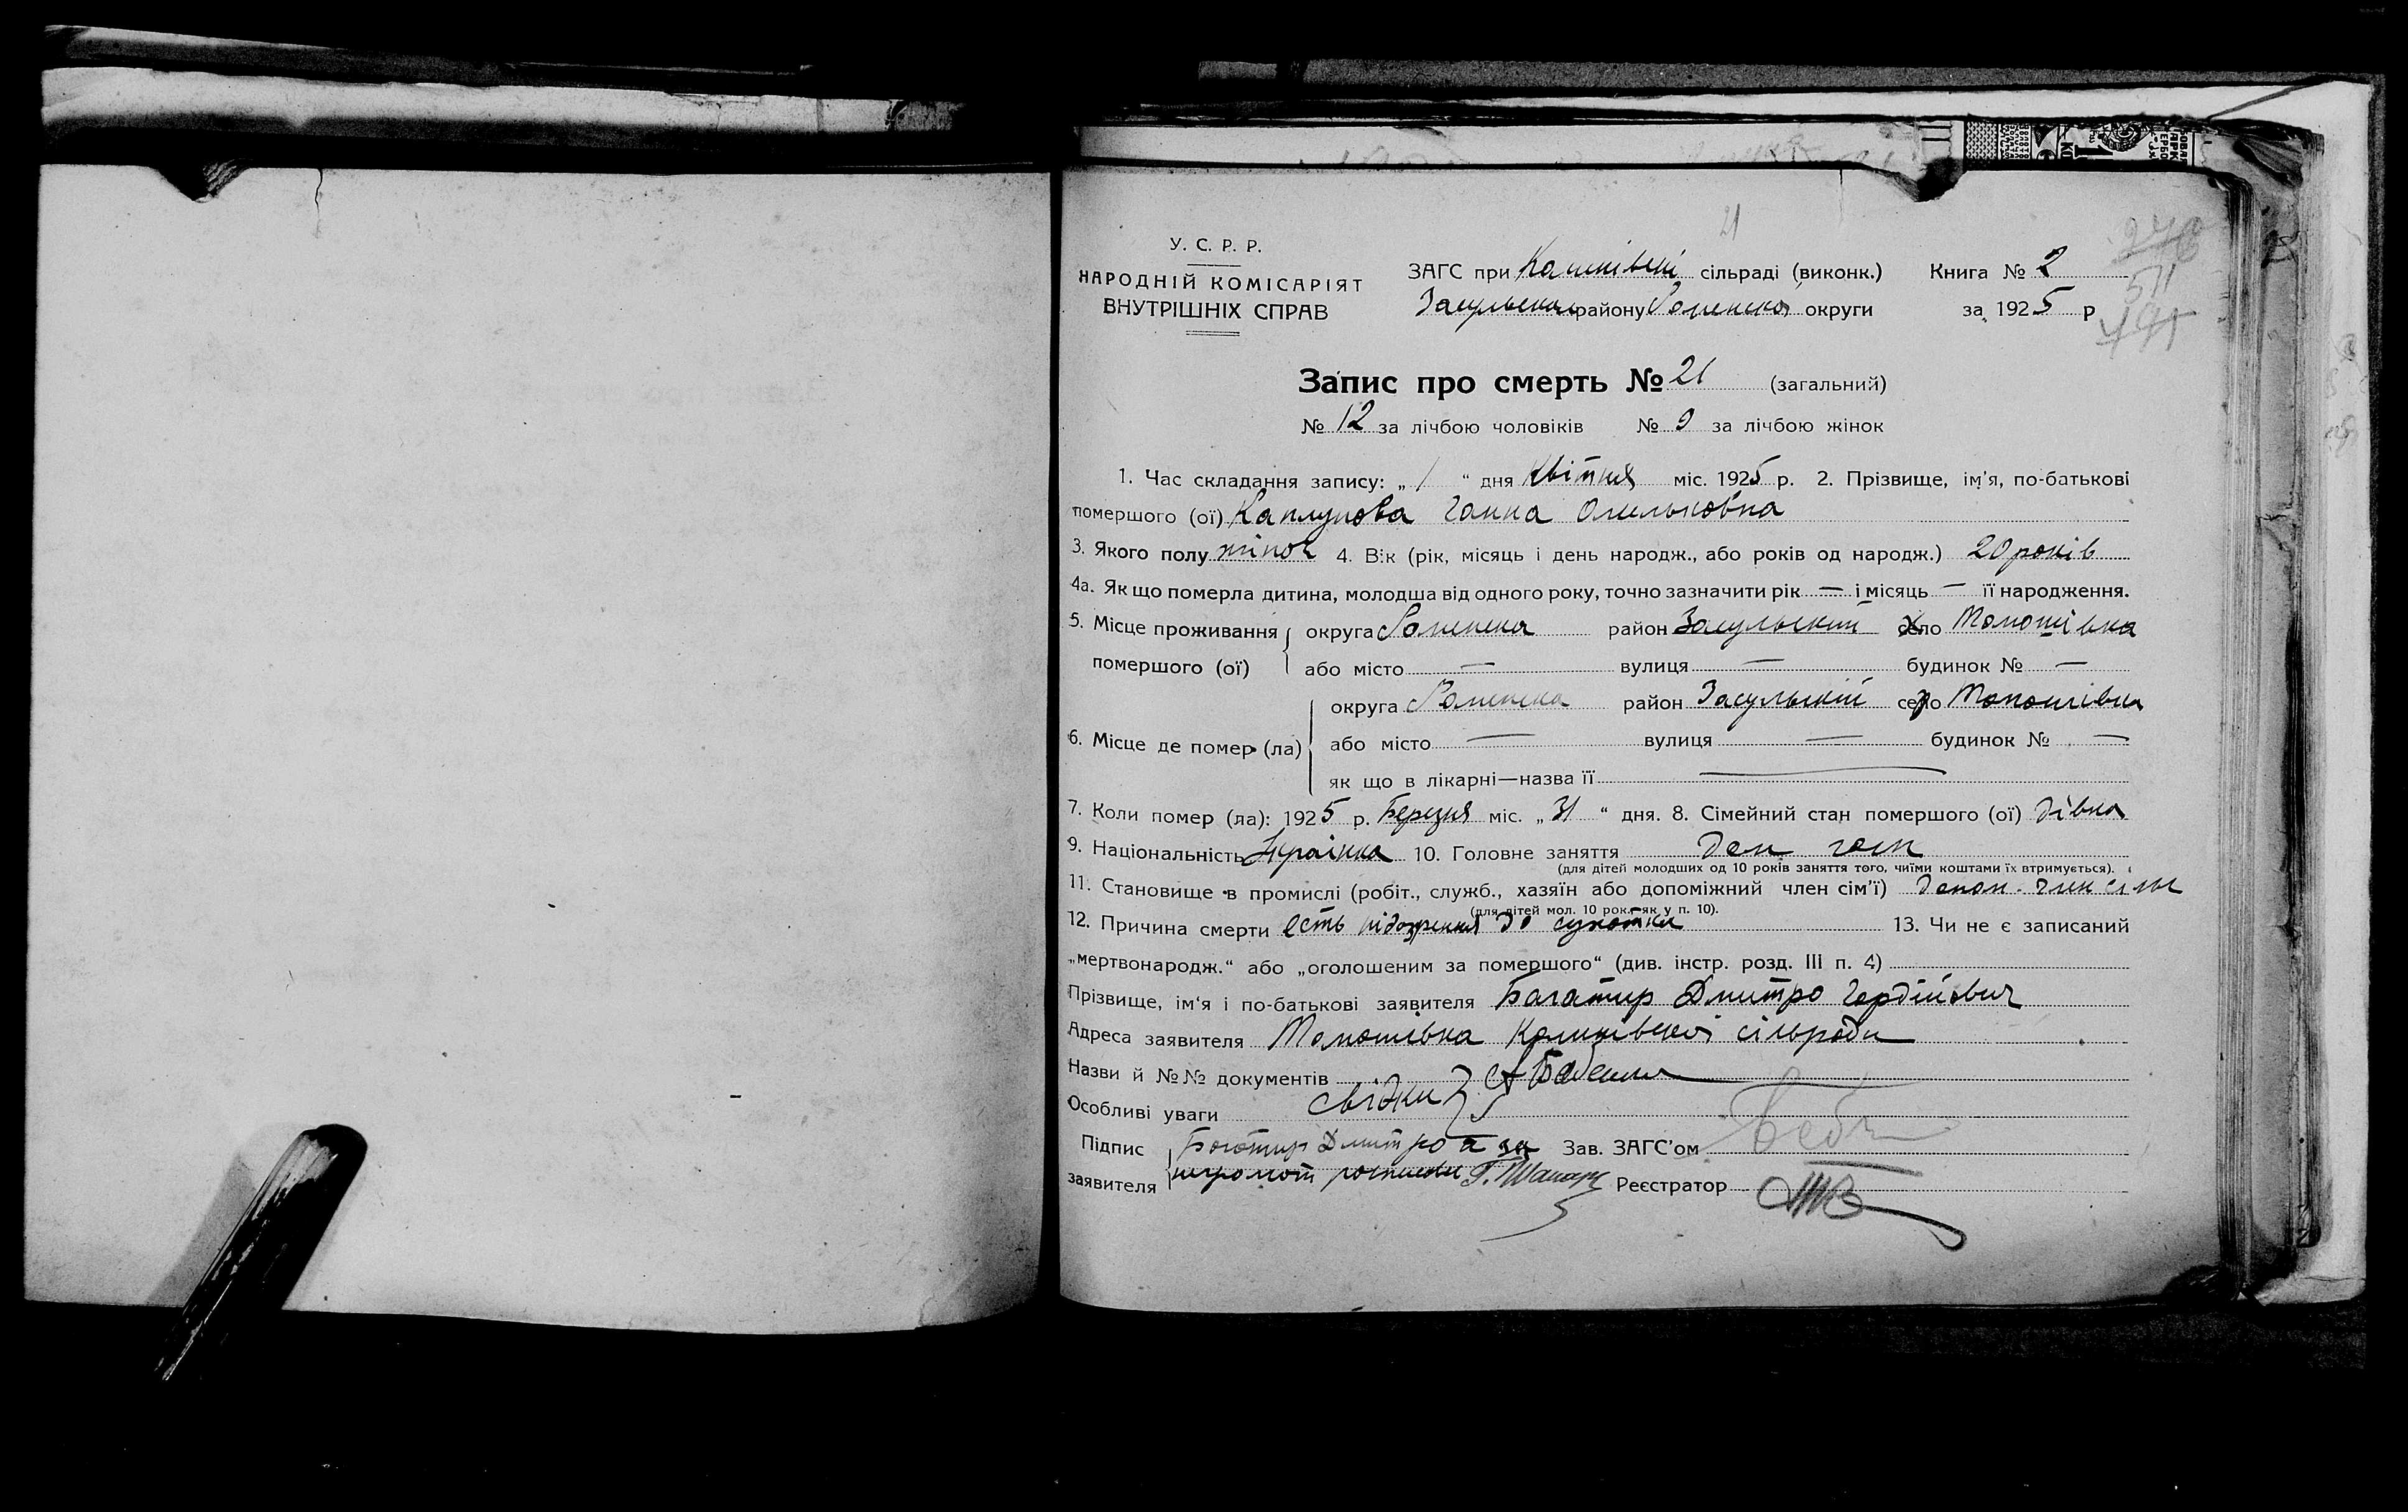 У. С. Р. Р.
НАРОДНІЙ КОМІСАРІЯТ
ВНУТРІШНІХ СПРАВ
21
ЗАГС при сільраді (виконк.) Книга № 2
Засульськ району Роменської округи за 1925 р
511
Запис про смерть № 21 (загальний)
№ 12 за лічбою чоловіків № 9 за лічбою жінок
1. Час складання запису: „ 1 “ дня Квітня міс. 1925 р. 2. Прізвище, ім'я, по-батькові
помершого (ої) Каплунова Ганна Омельковна
3. Якого полу жіноч 4. Вік (рік, місяць і день народж., або років од народж.) 20 років
4а. Як що померла дитина, молодша від одного року, точно зазначити рік — і місяць — її народження.
5. Місце проживання округа Роменська район Засульский село
помершого (ої) або місто — вулиця — будинок № —
округа Роменська район Засульский село
6. Місце де помер (ла) або місто — вулиця — будинок № —
як що в лікарні—назва її —
7. Коли помер (ла): 1925 р. Березня міс. „ 31 “ дня. 8. Сімейний стан помершого (ої) дівка
9. Національність Українка 10. Головне заняття
(для дітей молодших од 10 років заняття того, чиїми коштами їх втримується).
11. Становище в промислі (робіт., служб., хазяїн або допоміжний член сім'ї) допом. член сімі
(для дітей мол. 10 рок. як у п. 10).
12. Причина смерти есть підозрення до сухотки 13. Чи не є записаний
„мертвонародж.“ або „оголошеним за помершого“ (див. інстр. розд. III п. 4)
Прізвище, ім'я і по-батькові заявителя Багатир Дмитро Гордійович
Адреса заявителя сільради
Назви й №№ документів
Особливі уваги свідки
Підпис Богатир Дмитро а за Зав. ЗАГС'ом
заявителя неграмот Реєстратор